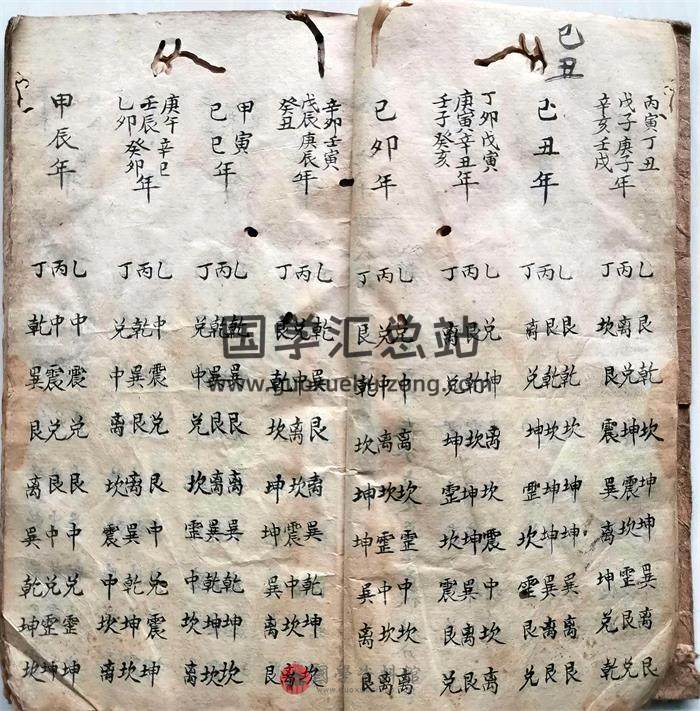 己丑
丙寅丁丑
戊子庚子年
辛亥壬戌
乙艮乾坎坤坤巽离艮
丙离兑坤震坎震艮兑
丁坎艮震巽离坤兑乾
己丑年
乙艮乾坎坤坤巽离艮
丙艮乾坎坤坤巽离艮
丁离兑坤震坎震艮兑
丁卯戊寅
庚寅辛丑年
壬子癸亥
乙兑坤离坎震中坎离
丙艮乾坎坤坤巽离艮
丁离兑坤震坎震艮兑
己卯年
乙兑中离坎震中坎离
丙兑中离坎震中坎离
丁艮乾坎坤坤巽离艮
辛卯壬寅
戊辰庚辰年
癸丑
乙乾巽艮离巽乾坤坎
丙兑中离坎震中坎离
丁艮乾坎坤坤巽离艮
甲寅
己巳年
乙乾巽艮离巽乾坤坎
丙乾巽艮离巽乾坤坎
丁兑中兑坎震中坎离
庚午辛巳
壬辰年
乙卯癸卯
乙中震兑艮中兑震坤
丙乾巽艮离巽乾坤坎
丁兑中离坎震中坎离
甲辰年
乙中震兑艮中兑震坤
丙中震兑艮中兑震坤
丁乾巽艮离巽乾坤坎
国学汇总站
www.guoxuehuizong.com